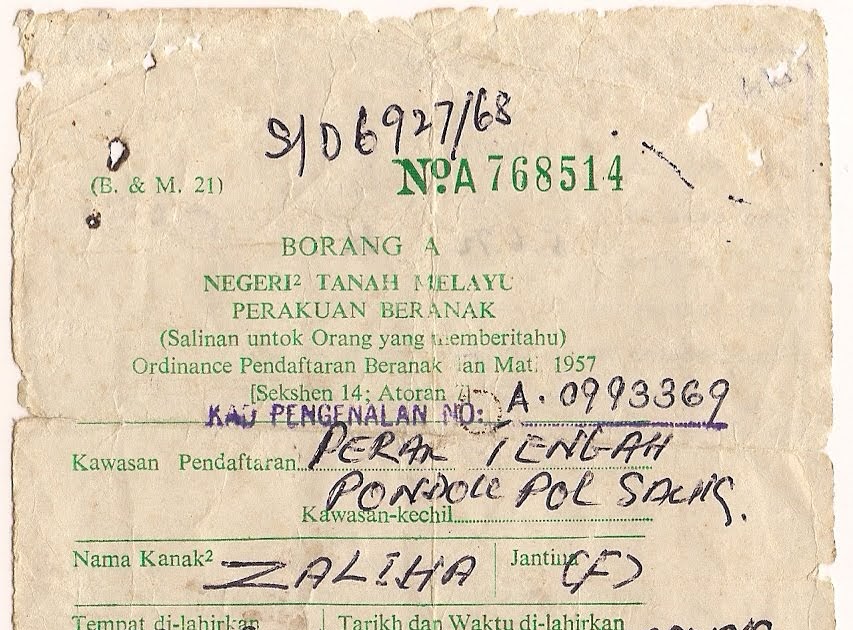 S/D 6927/68
(B. & M. 21)
No. A 768514
BORANG A
NEGERI² TANAH MELAYU
PERAKUAN BERANAK
(Salinan untok Orang yang memberitahu)
Ordinance Pendaftaran Beranak dan Mati 1957
[Sekshen 14; Atoran
KAD PENGENALAN NO: A. 0993369
Kawasan Pendaftaran PERAK TENGAH
PONDOK POL
Kawasan-kechil
Nama Kanak² ZALIHA Jantina (F)
Tempat di-lahirkan Tarikh dan Waktu di-lahirkan